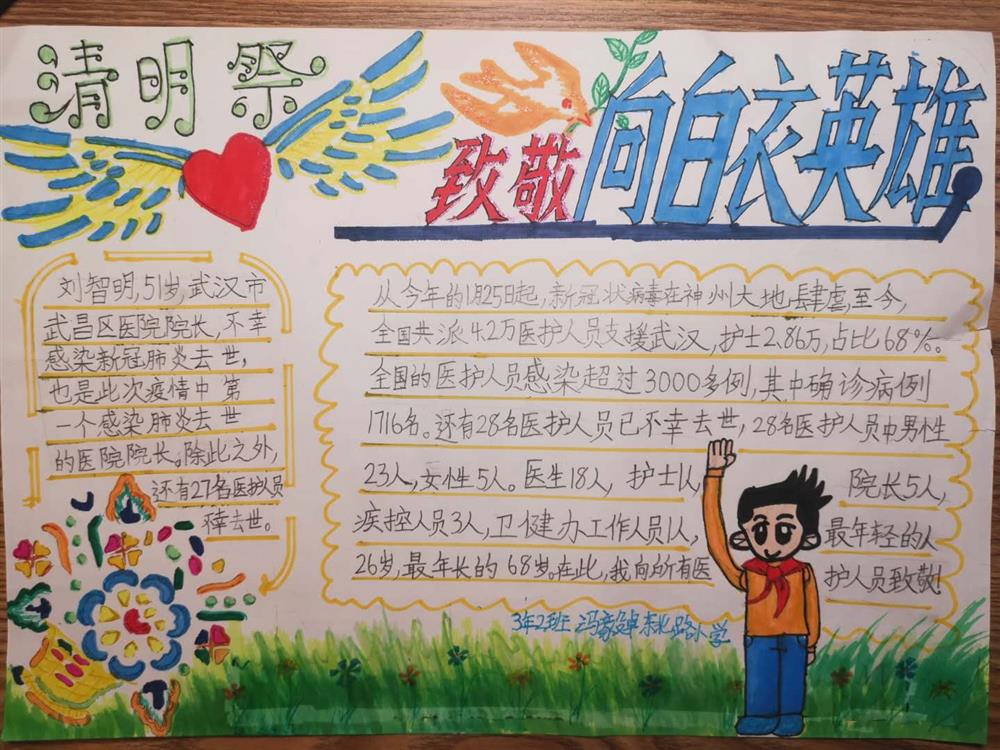 清明祭
致敬向白衣英雄
刘智明,51岁,武汉市
武昌区医院院长,不幸
感染新冠肺炎去世,
也是此次疫情中第
一个感染肺炎去世
的医院院长。除此之外,
还有27名医护人员
不幸去世。
从今年的1月25日起,新冠状病毒在神州大地肆虐,至今,
全国共派4.2万医护人员支援武汉,护士2.86万,占比68%。
全国的医护人员感染超过3000多例,其中确诊病例
1716名。还有28名医护人员已不幸去世,28名医护人员中男性
23人,女性5人。医生18人,护士1人,院长5人,
疾控人员3人,卫健办工作人员1人,最年轻的人
26岁,最年长的68岁。在此,我向所有医护人员致敬!
3年2班 冯 路小学